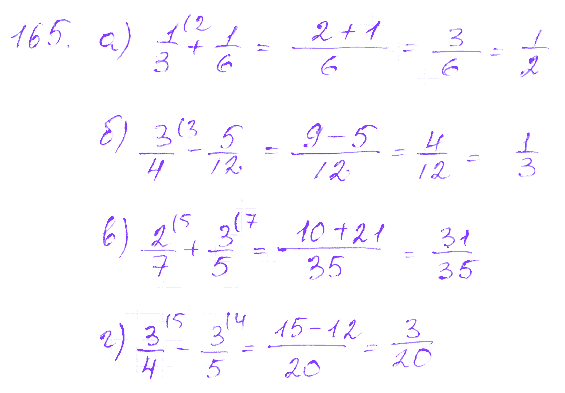 165. а) 1/3 (2 + 1/6 = (2 + 1)/6 = 3/6 = 1/2
б) 3/4 (3 - 5/12 = (9 - 5)/12 = 4/12 = 1/3
в) 2/7 (5 + 3/5 (7 = (10 + 21)/35 = 31/35
г) 3/4 (5 - 3/5 (4 = (15 - 12)/20 = 3/20